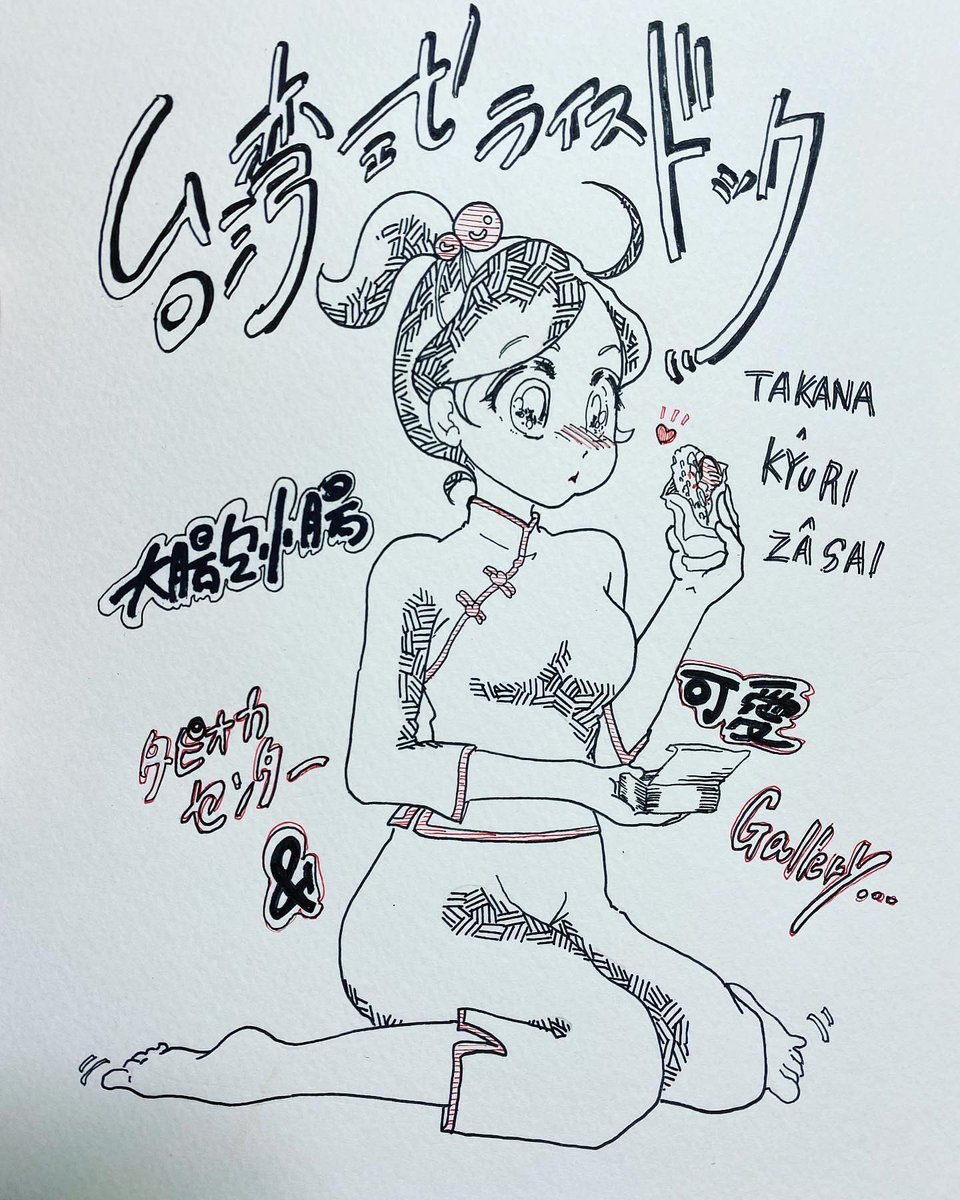 台湾式ライスドック
TAKANA
KŶURI
ZÂSAI
大腸包小腸
可愛
タピオカ
センター
&
Gallery...